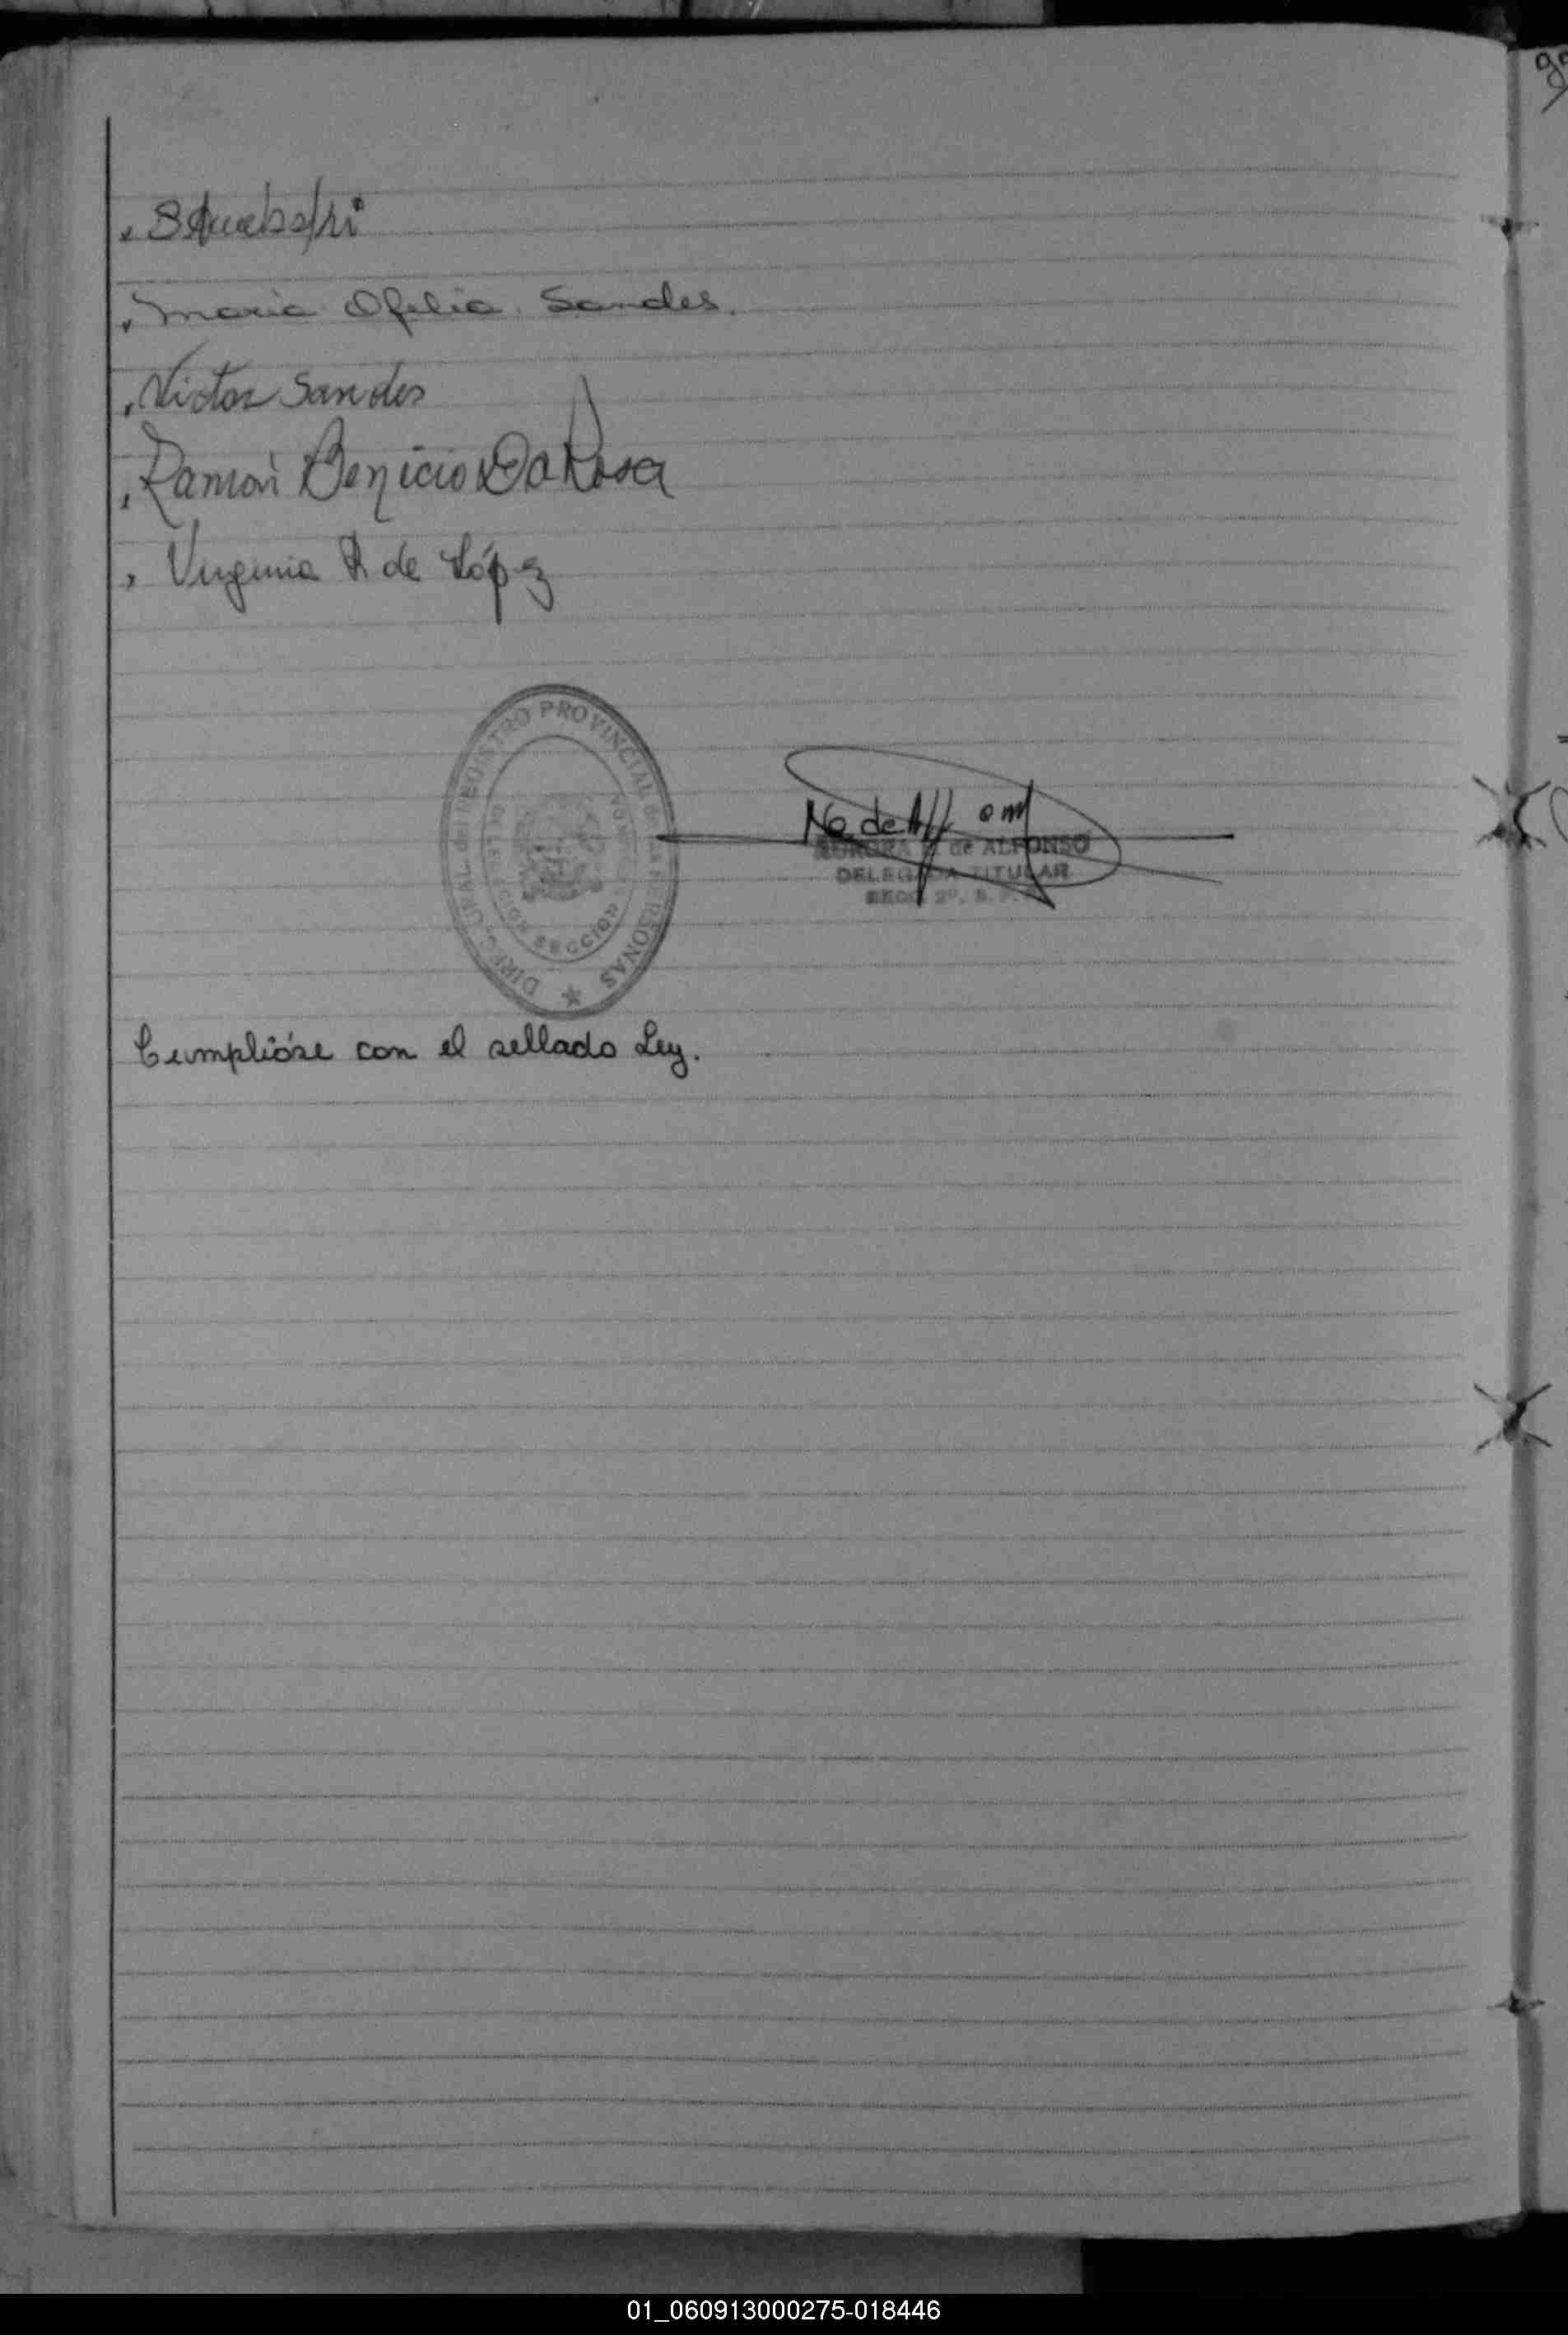 Maria Ofelia Sandes.
Victor Sandes
Ramón Benicio Da Rosa
Virginia R de López
DIREC. GRAL. del REGISTRO PROVINCIAL de las PERSONAS
DELEGACION SECCION
AURORA N. de ALFONSO
DELEGADA TITULAR
SECC. 2º. R. P.
Cumplióse con el sellado Ley.
01_060913000275-018446